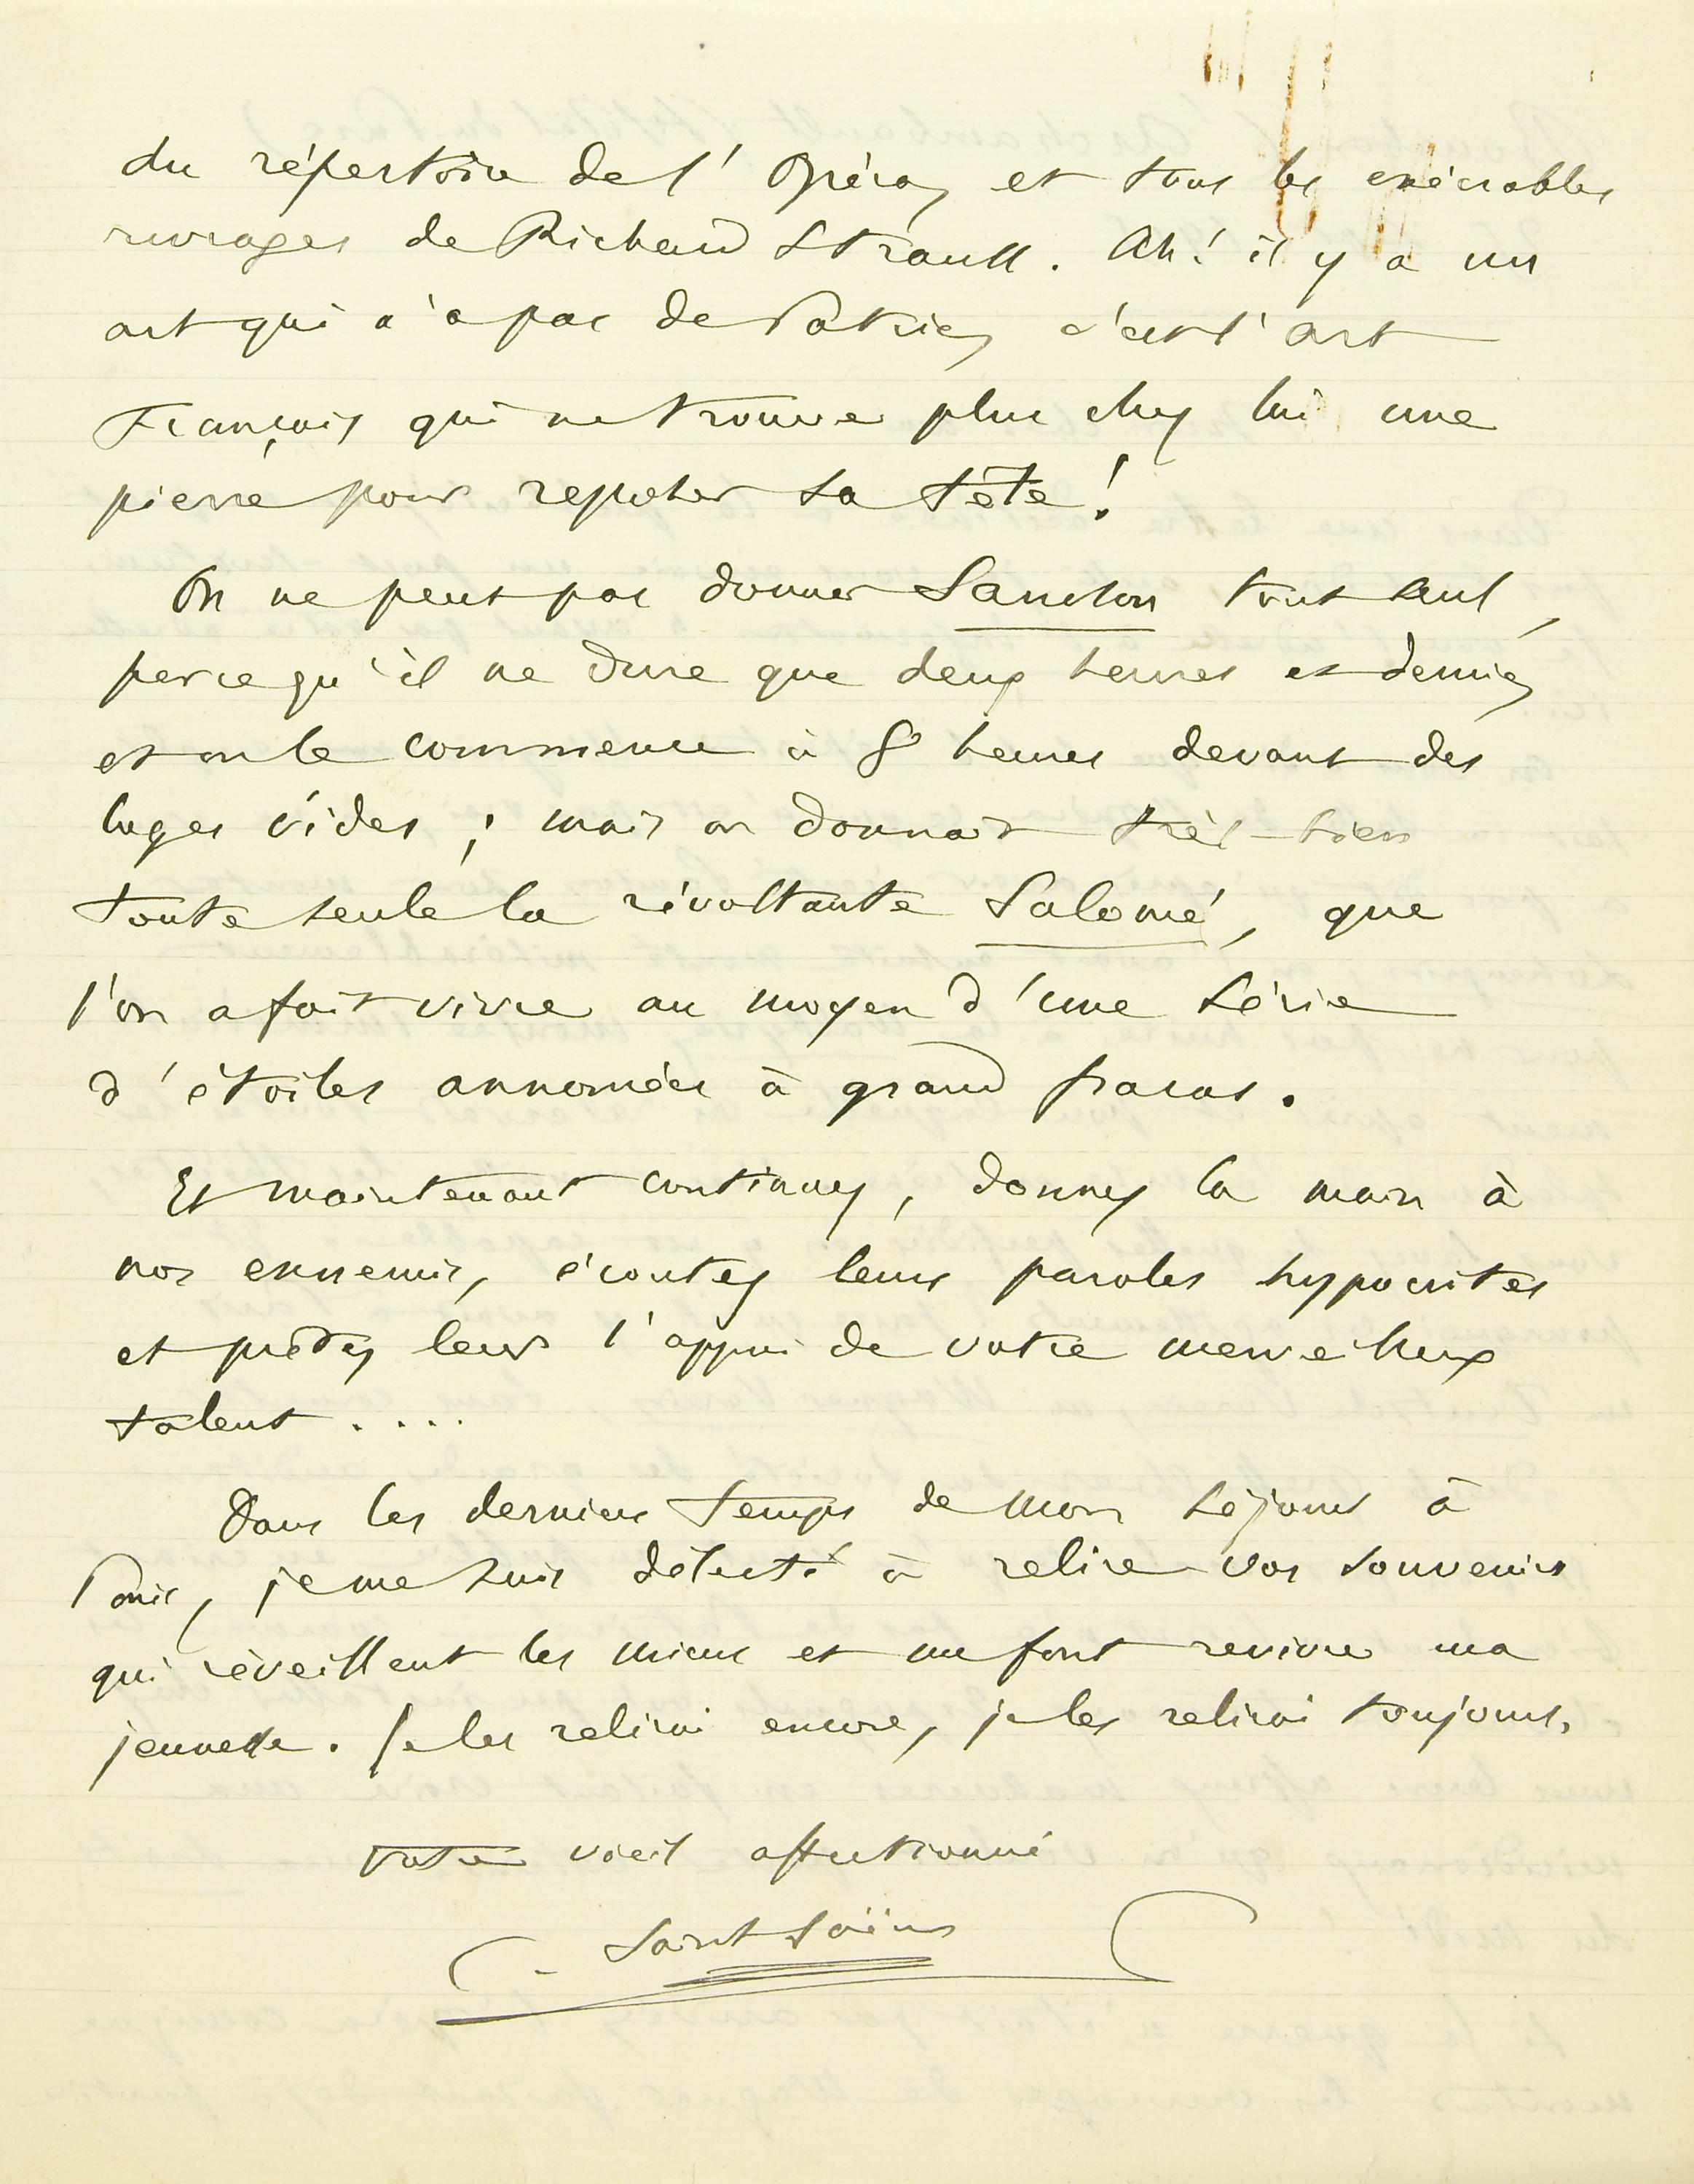 du répertoire de l'Opéra, et tous les exécrables
ouvrages de Richard Strauss. Ah! il y a un
art qui n'a pas de Patrie, c'est l'art
Français qui ne trouve plus chez lui une
pierre pour reposer sa tête!
On ne peut pas donner Samson tout seul,
parce qu'il ne dure que deux heures et demie,
et on le commence à 8 heures devant des
loges vides; mais on donnait très-bien
toute seule la révoltante Salomé, que
l'on a fait vivre au moyen d'une série
d'étoiles annoncées à grand fracas.
Et maintenant continuez, donnez la main à
nos ennemis, écoutez leurs paroles hypocrites
et prêtez leur l'appui de votre merveilleux
talent....
Dans les derniers temps de mon séjour à
Paris, je me suis délecté à relire vos souvenirs
qui réveillent les miens et me font revivre ma
jeunesse. Je les relirai encore, je les relirai toujours.
Votre vieil affectionné
C. Saint-Saëns